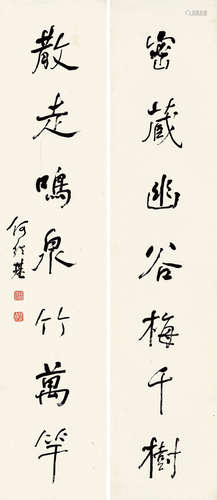 密藏幽谷梅千樹
散走鳴泉竹萬竿
何紹基